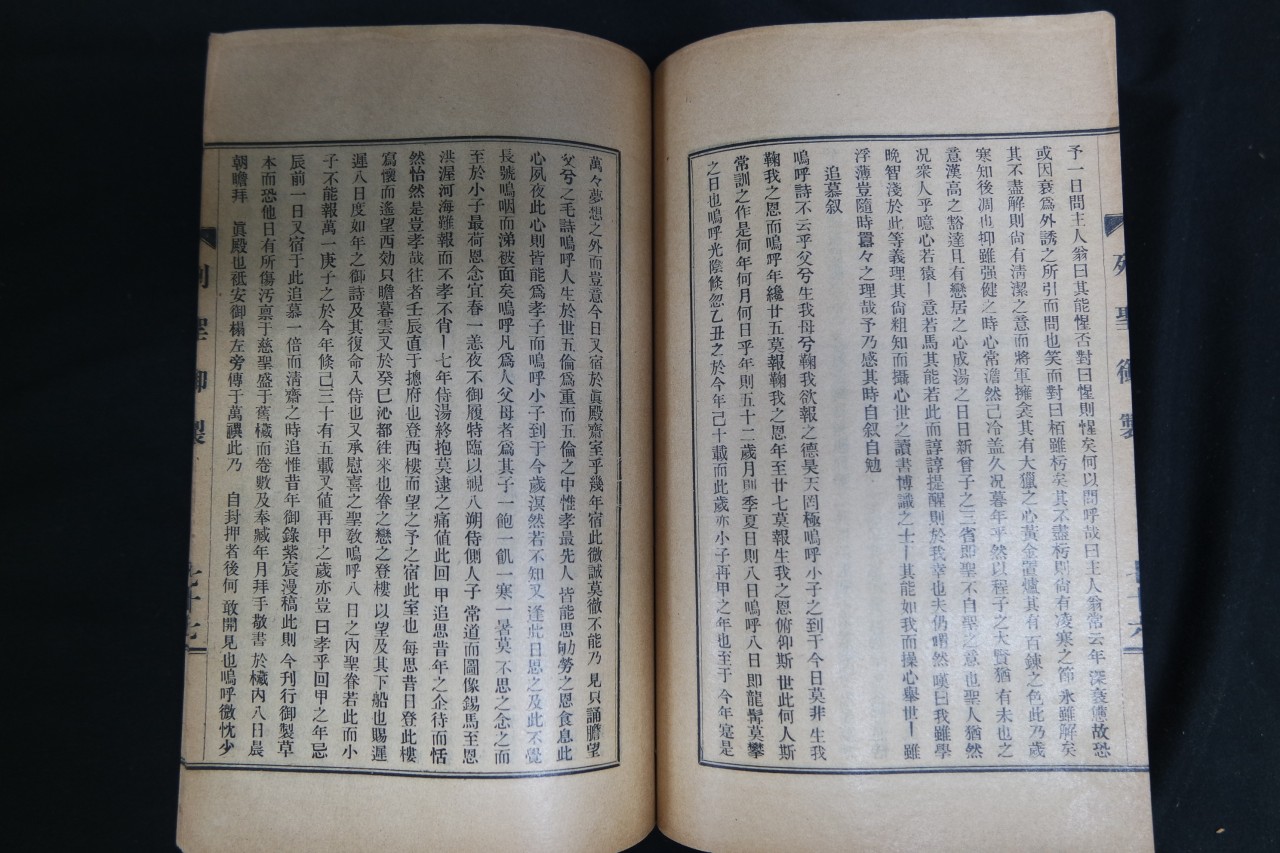 予一日問主人翁曰其能惺否對曰惺則惺矣何以問呼哉曰主人翁常云年深衰憊故恐
或因衰爲外誘之所引而問也笑而對曰栢雖朽矣其不盡朽則尙有凌寒之節氷雖解矣
其不盡解則尙有淸潔之意而將軍擁衾其有大獵之心黃金置爐其有百鍊之色此乃歲
寒知後凋也抑雖强健之時心常澹然己冷盖久况暮年乎然以程子之大賢猶有未也之
意漢高之豁達且有戀居之心成湯之日日新曾子之三省即聖不自聖之意也聖人猶然
况衆人乎噫心若猿一意若馬其能若此而諄諄提醒則於我幸也夫仍喟然嘆曰我雖學
晚智淺於此等義理其尙粗知而攝心世之讀書博識之士一其能如我而操心擧世一雖
浮薄豈隨時囂々之理哉予乃感其時自叙自勉
追慕叙
嗚呼詩不云乎父兮生我母兮鞠我欲報之德昊天罔極嗚呼小子之到于今日莫非生我
鞠我之恩而嗚呼年纔廿五莫報鞠我之恩年至廿七莫報生我之恩俯仰斯世此何人斯
常訓之作是何年何月何日乎年則五十二歲月則季夏日則八日嗚呼八日即龍髯莫攀
之日也嗚呼光陰倐忽乙丑之於今年己十載而此歲亦小子再甲之年也至于今年寔是
列聖御製
七十六
萬々夢想之外而豈意今日又宿於眞殿齋室乎幾年宿此微誠莫徹不能乃見只誦瞻望
父兮之毛詩嗚呼人生於世五倫爲重而五倫之中惟孝最先人皆能思劬勞之恩食息此
心夙夜此心則皆能爲孝子而嗚呼小子到于今歲溟然若不知又逢此日思之及此不覺
長號嗚咽而涕被面矣嗚呼凡爲人父母者爲其子一飽一飢一寒一暑莫不思之念之而
至於小子最荷恩念宜春一恙夜不御履特臨以視八朔侍側人子常道而圖像錫馬至恩
洪渥河海難報而不孝不肖一七年侍湯終抱莫逮之痛値此回甲追思昔年之企待而恬
然怡然是豈孝哉往者壬辰直于摠府也登西樓而望之予之宿此室也每思昔日登此樓
寫懷而遙望西効只瞻暮雲又於癸巳沁都往來也眷之戀之登樓以望及其下船也賜遲
遲八日度如年之御詩及其復命入侍也又承慰喜之聖敎嗚呼八日之內聖眷若此而小
子不能報萬一庚子之於今年倐己三十有五載又値再甲之歲亦豈曰孝乎回甲之年忌
辰前一日又宿于此追慕一倍而淸齋之時追惟昔年御錄紫宸漫稿此則今刊行御製草
本而恐他日有所傷汚禀于慈聖盛于舊櫃而卷數及奉臧年月拜手敬書於櫃內八日晨
朝瞻拜眞殿也祗安御榻左旁傳于萬禩此乃自封押者後何敢開見也嗚呼微忱少
列聖御製
七十七